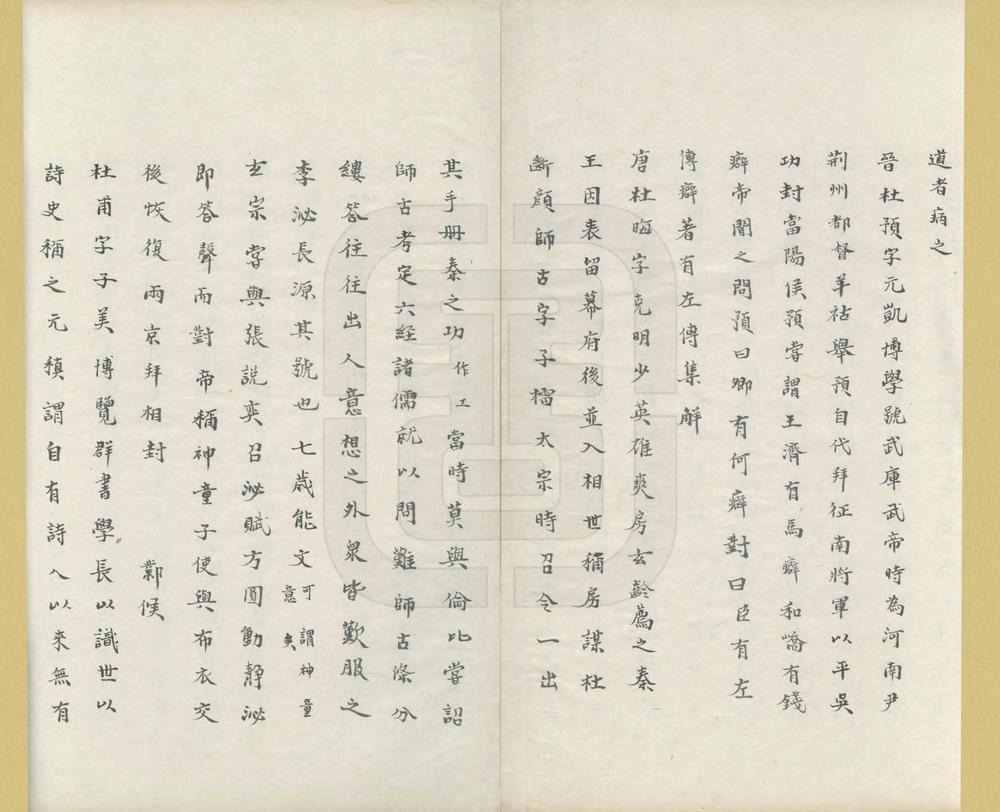 道者病之
晉杜預字元凱博學號武庫武帝時為河南尹
荆州都督羊祜舉預自代拜征南將軍以平吳
功封當陽侯預嘗謂王濟有馬癖和嶠有錢
癖帝聞之問預曰卿有何癖對曰臣有左
傳癖著有左傳集解
唐杜晦字克明少英雄爽房玄齡薦之秦
王因表留幕府後並入相世稱房謀杜
斷顔師古字子橊太宗時召令一出
其手册奏之功作工當時莫與倫比嘗詔
師古考定六経諸儒就以問難師古條分
縷答往往出人意想之外衆皆歎服之
李泌長源其號也七歲能文可謂神童意夾
玄宗嘗與張説奕召泌賦方圓動靜泌
即答聲而對帝稱神童子使與布衣交
後恢復兩京拜相封鄴候
杜甫字子美博覽群書學長以識世以
詩史稱之元稹謂自有詩人以來無有